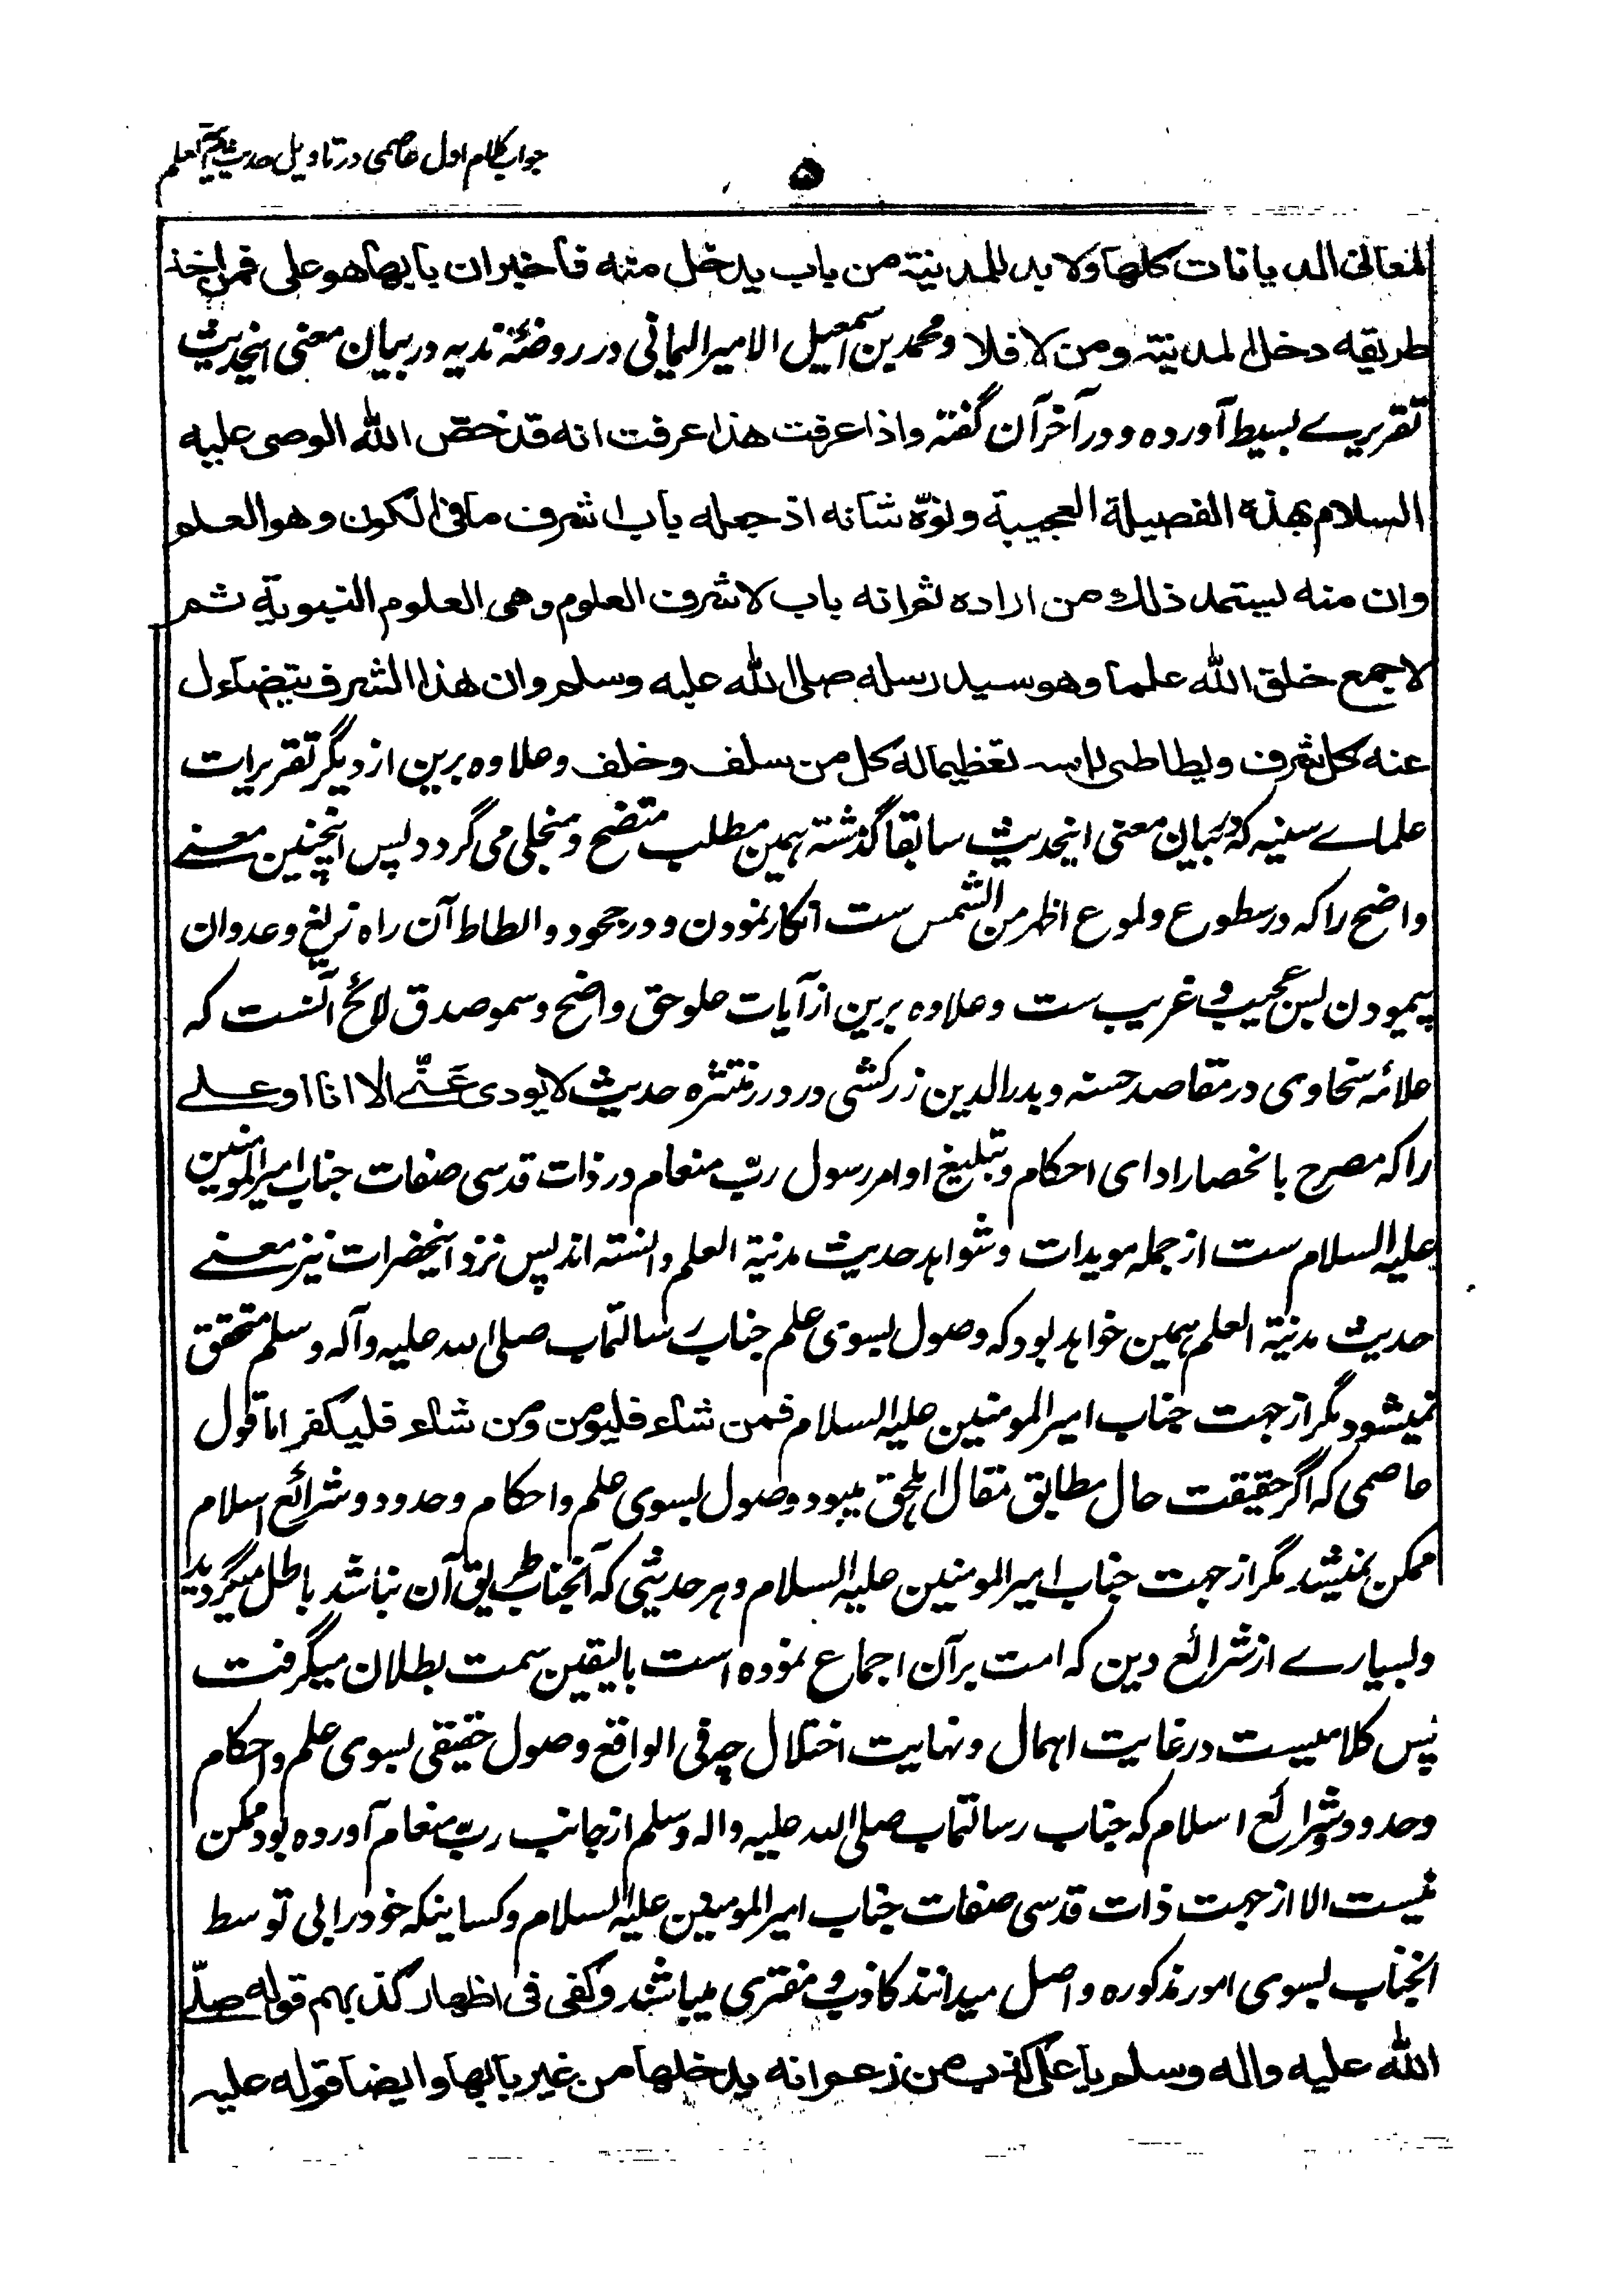 جواب کلام اول عاصمی در تاویل حدیث مدینة العلم
۵
لمعانی الدیانات کلها ولا بد للمدینة من باب یدخل منه فاخبران بابها هو علی فمن اخذ
طریقه دخل المدینة ومن لا فلا و محمد بن اسمعیل الامیر الیمانی در روضهٔ ندیه در بیان معنی اینحدیث
تقریرے بسیط آورده و در آخر آن گفته واذا عرفت هذا عرفت انه قد خصّ الله الوصی علیه
السلام بهذه الفضیلة العجیبة ونوّه شانه اذ جعله باب اشرف ما فی الکون وهو العلم
وان منه یستمد ذلك من اراده ثم انه باب لاشرف العلوم وهی العلوم النبویة ثم
لاجمع خلق الله علما وهو سید رسله صلی الله علیه وسلم وان هذا الشرف یتضاءل
عنه کل شرف ویطاطی راسه تعظیما له کل من سلف وخلف و علاوه برین از دیگر تقریرات
علماے سنیه که در بیان معنی اینحدیث سابقا گذشته همین مطلب متضح و منجلی می گردد پس اینچنین معنے
واضح را که در سطوع و لموع اظهر من الشمس ست انکار نمودن و در جحود و الطاط آن راه زیغ و عدوان
پیمودن بس عجیب و غریب ست و علاوه برین از آیات علو حق واضح و سمو صدق لائح آنست که
علامه سخاوی در مقاصد حسنه و بدر الدین زرکشی در درر منتثره حدیث لا یودی عَنّے الا انا او علے
را که مصرح بانحصار ادای احکام و تبلیغ اوامر رسول ربّ منعام در ذات قدسی صفات جناب امیر المومنین
علیه السلام ست از جمله مویدات و شواهد حدیث مدینة العلم دانسته اند پس نزد اینحضرات نیز معنے
حدیث مدینة العلم همین خواهد بود که وصول بسوی علم جناب رسالتماب صلی الله علیه وآله وسلم متحقق
نمیشود مگر از جهت جناب امیر المومنین علیه السلام فمن شاء فلیومن ومن شاء فلیکفر اما قول
عاصمی که اگر حقیقت حال مطابق مقال اهل حق میبود وصول بسوی علم و احکام و حدود و شرائع اسلام
ممکن نمیشد مگر از جهت جناب امیر المومنین علیه السلام و هر حدیثی که آنجناب طریق آن نباشد باطل میگردید
و بسیارے از شرائع دین که امت بر آن اجماع نموده است بالیقین سمت بطلان میگرفت
پس کلامیست در غایت اهمال و نهایت اختلال چه فی الواقع وصول حقیقی بسوی علم و احکام
و حدود و شرائع اسلام که جناب رسالتماب صلی الله علیه واله وسلم از جانب ربّ منعام آورده بود ممکن
نیست الا از جهت ذات قدسی صفات جناب امیر المومنین علیه السلام و کسانیکه خود را بی توسط
آنجناب بسوی امور مذکوره واصل میدانند کاذب و مفتری میباشند وکفی فی اظهار کذبهم قوله صلّے
الله علیه واله وسلم یا علی کذب من زعم انه یدخلها من غیر بابها وایضا قوله علیه